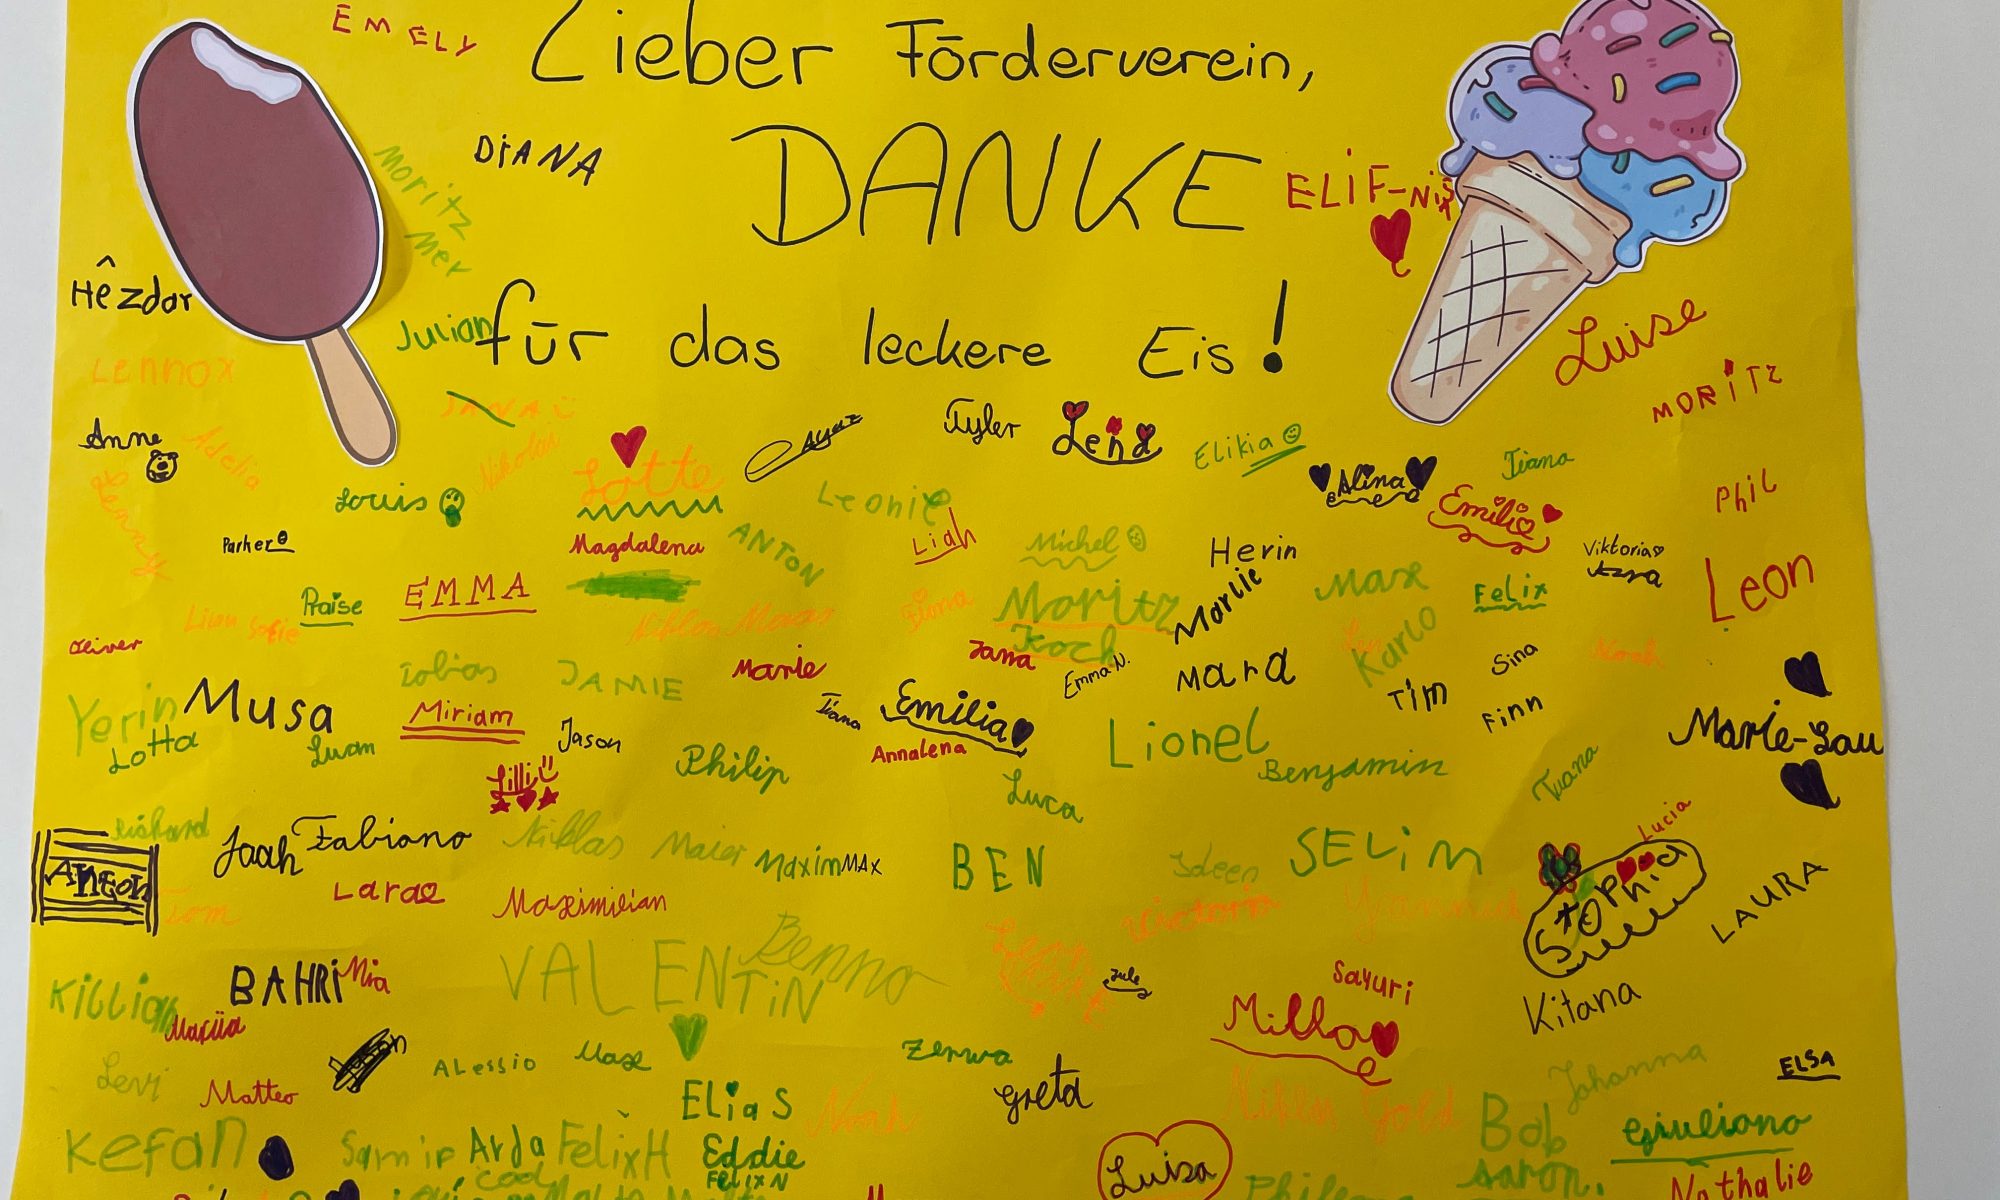 EMELY
Lieber Förderverein,
DANKE
für das leckere Eis!
DIANA
Moritz
Mer
ELIF-Nisa
Hêzdar
Julian
Luise
Lennox
MORITZ
JANA
Anne
Adelia
Nikolai
Lotte
Ayaz
Tyler
Lena
Elikia
Alina
Tiana
Emilio
Phil
Jenny
Louis
Leonie
Parker
Magdalena
ANTON
Liah
Michel
Herin
Viktoria
Azra
Leon
Praise
EMMA
Marlie
Max
Felix
Moritz
Koch
Lian
Sofie
Niklas Moras
Fiona
Karlo
Oliver
Tobias
JAMIE
Marie
Jana
Emma N.
Mara
Tim
Sina
Noah
Yerin
Musa
Miriam
Jason
Tiana
Emilia
Finn
Marie-Lou
Lotta
Luam
Philip
Annalena
Lionel
Benjamin
Tuana
Lilli
Luca
Richard
Fabiano
Niklas Maier
Maxim
MAX
BEN
SELIM
Lucia
Sophia
Anton
Tom
Lara
Maximilian
Victoria
Yannick
LAURA
VALENTIN
Benno
Killian
BAHRI
Mia
Jule
Sayuri
Kitana
Milla
Levi
Matteo
Alessio
Max
Zerwa
Greta
Johanna
ELSA
Elias
Noah
Niklas Gold
Bob
Giuliano
Kefan
Samir
Arda
Felix H
Eddie
Felix N
Luisa
Aaron.
Nathalie